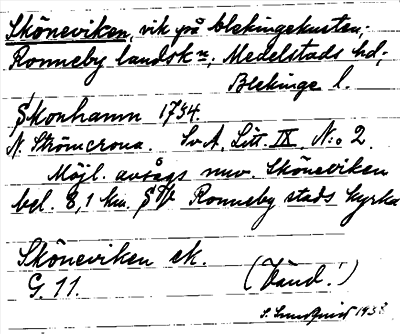 Sköneviken, vik på blekingekusten,
Ronneby landskn, Medelstads hd,
Blekinge l.
Skonhamn 1734.
N. Strömcrona. Sv. A. Litt. IX. N:o 2.
Möjl. avsågs nuv. Sköneviken
bel. 8,1 km. SV Ronneby stads kyrka
Sköneviken ek.
G. 11. (Vänd!)
1938